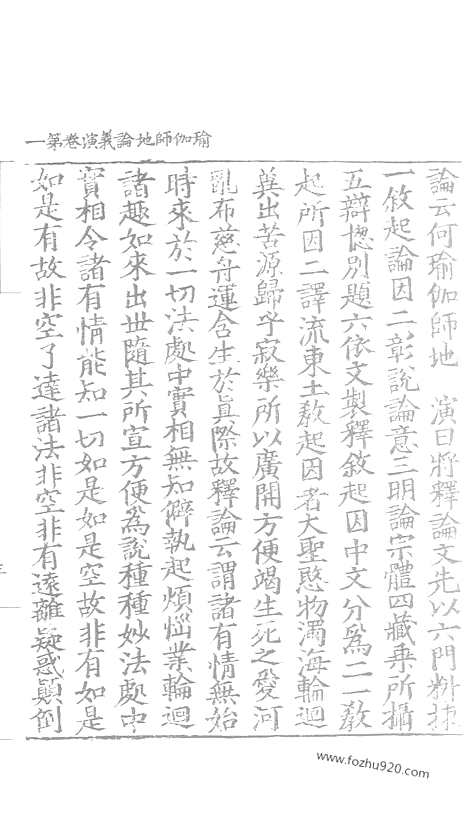 瑜伽師地論義演卷第一
論云何瑜伽師地　演曰將釋論文先以六門料揀
一敘起論因二彰說論意三明論宗體四藏乘所攝
五辯惣別題六依文製釋敘起因中文分為二一教
起所因二譯流東土教起因者大聖愍物濁海輪迴
冀出苦源歸乎寂樂所以廣開方便竭生死之愛河
乱布慈舟運含生於真際故釋論云謂諸有情無始
時來於一切法處中實相無知僻執起煩惱業輪迴
諸趣如來出世隨其所宣方便為說種種妙法處中
實相令諸有情能知一切如是如是空故非有如是
如是有故非空了達諸法非空非有遠離疑惑顛倒
www.fozhu920.com